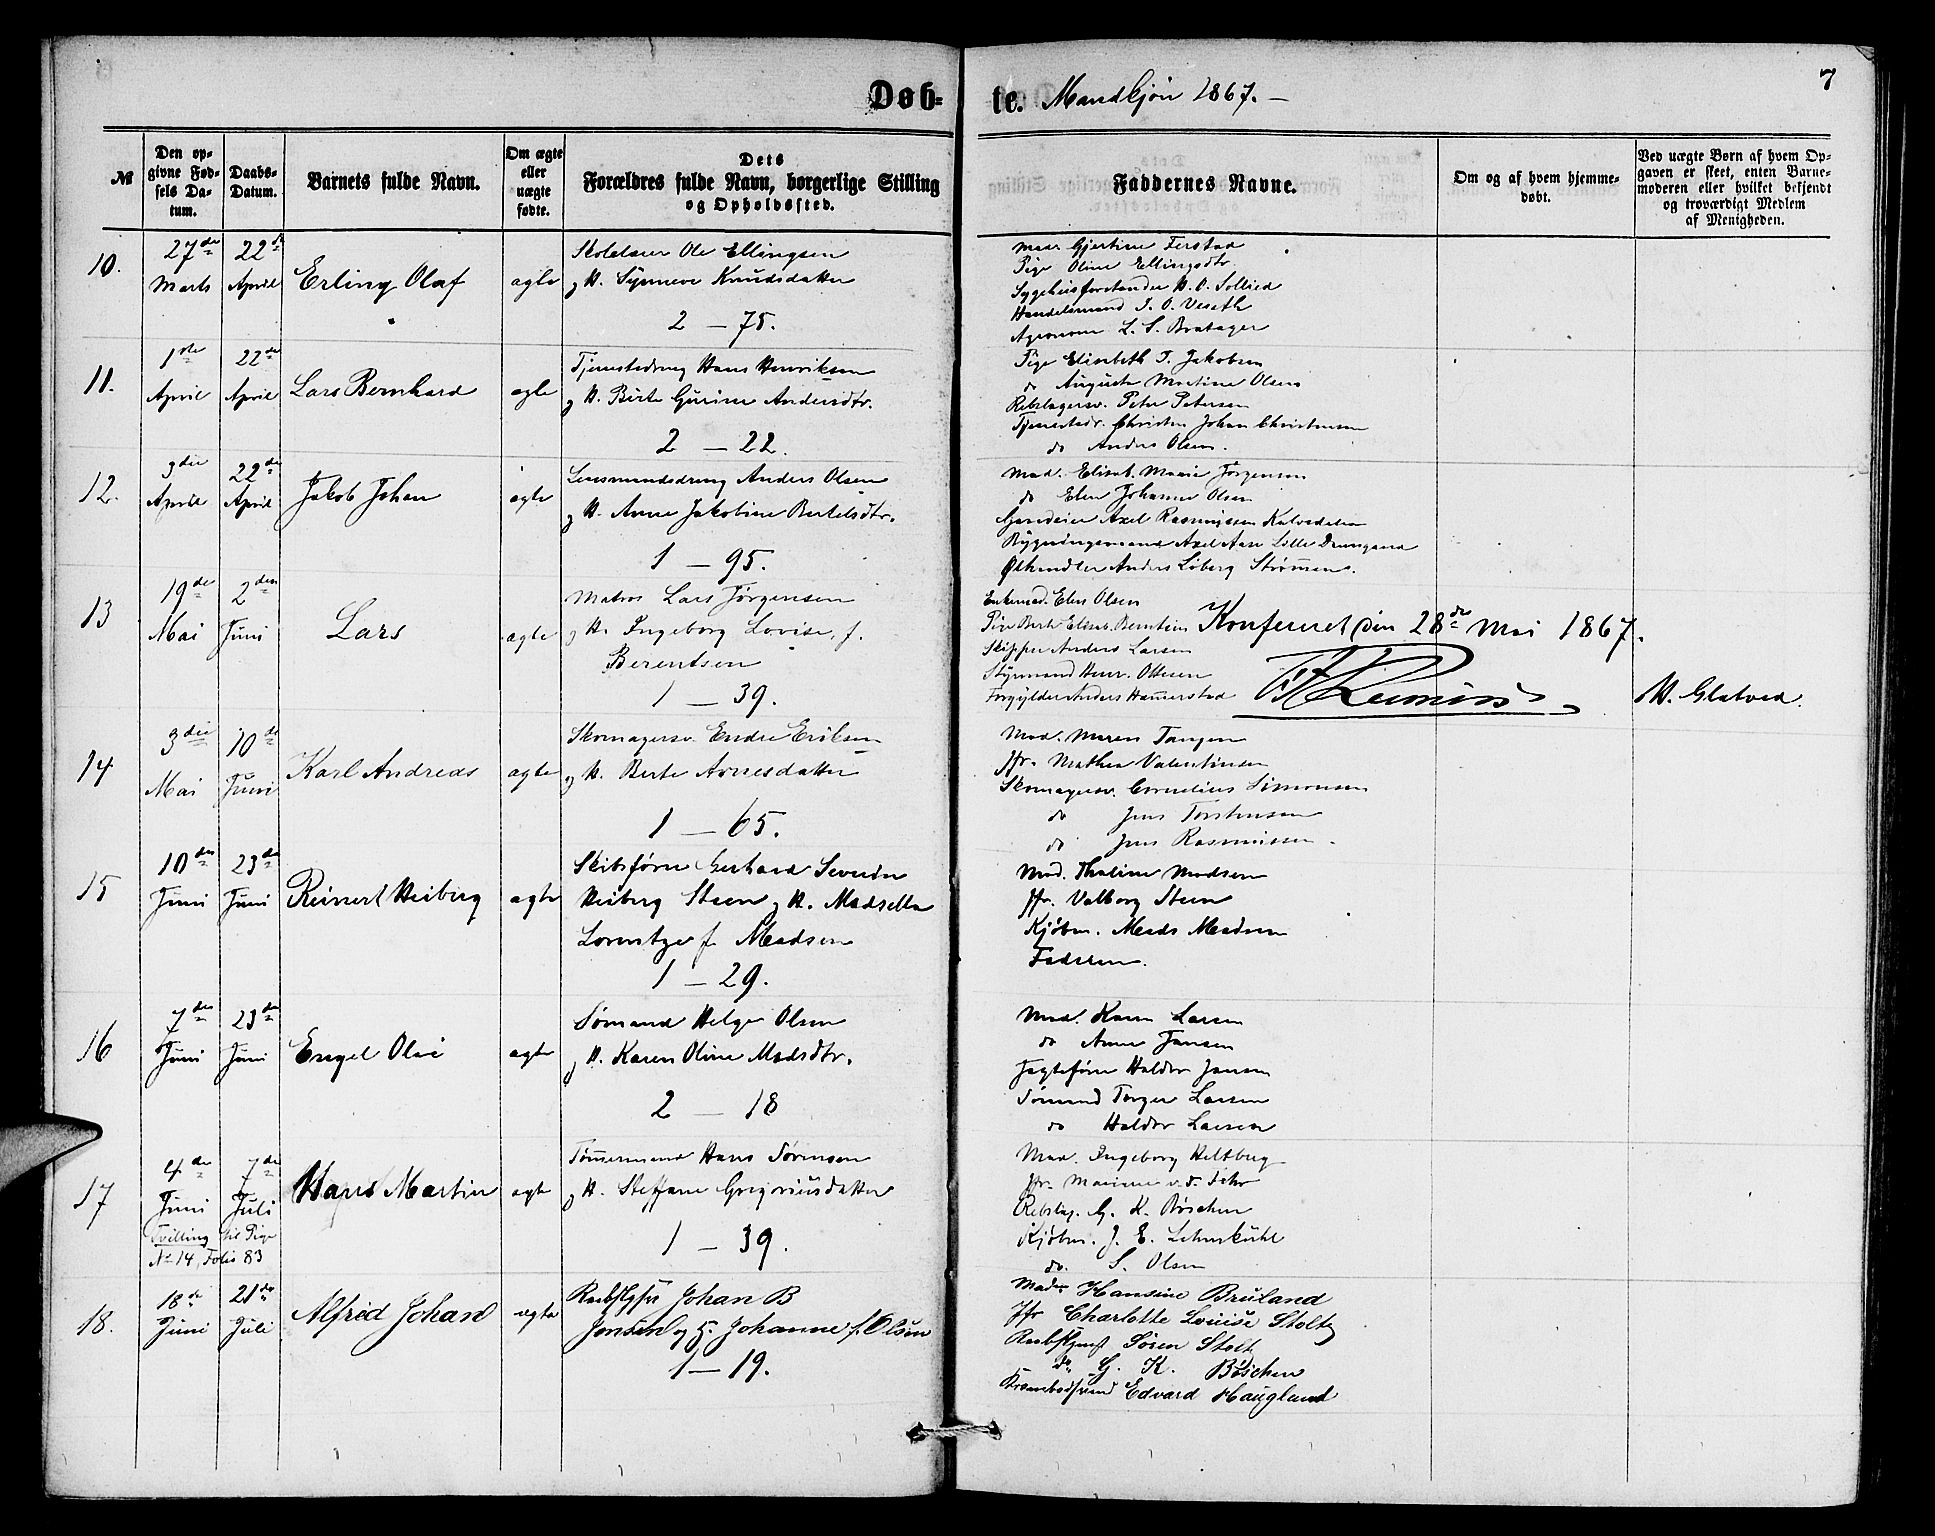 Døb-
te. Mandkjøn 1867.-
7
№
Den op-
givne Fød-
sels Da-
tum.
Daabs-
Datum.
Barnets fulde Navn.
Om ægte
eller
uægte
fødte.
Dets
Forældres fulde Navn, borgerlige Stilling
og Opholdssted.
Faddernes Navne.
Om og af hvem hjemme-
døbt.
Ved uægte Børn af hvem Op-
gaven er skeet, enten Barne-
moderen eller hvilket bekjendt
og troværdigt Medlem
af Menigheden.
10.
27de
Marts
22de
April
Erling Olaf
ægte
Skolelærer Ole Ellingsen
og H. Synneve Knudsdatter
2 - 75.
Mad. Gjertine Ferstad
Pige Oline Ellingsdtr.
Sygehusforstander H. O. Sollied
Handelsmand I. O. Veseth
Agronom L. S. Bratager
11.
1ste
April
22de
April
Lars Bernhard
ægte
Tjenestedreng Hans Henriksen
og H. Birte Gurine Andersdtr.
2 - 22.
Pige Elisabeth T. Jakobsen
do Augusta Martine Olsen
Rebslagersv. Peter Petersen
Tjenestedr. Christen Johan Christensen
do Anders Olsen.
12.
3die
April
22de
April
Jakob Johan
ægte
Lensmandsdreng Anders Olsen
og H. Anne Jakobine Bertelsdtr.
1 - 95.
Mad. Elisab. Marie Jørgensen
do Elen Johanne Olsen
Gaardeier Axel Rasmussen Kalvedalen
Bygningsmand Axel Aase Lille Damgaard
Ølhandler Anders Løberg Strømmen.
13
19de
Mai
2den
Juni
Lars
ægte
Matros Lars Jørgensen
og H. Ingeborg Lovise, f.
Berentsen
1 - 39.
Enkemad. Elen Olsen
Pige Berte Elisab. Berntsen
Skipper Anders Larsen
Styrmand Henr. Ottesen
Forgylder Anders Hammerstad
Konfereret den 28de Mai 1867.
H. Glatved.
14.
3die
Mai
10de
Juni
Karl Andreas
ægte
Skomagersv. Endre Eriksen
og H. Berte Arnesdatter
1 - 65.
Mad. Maren Tangen
Jfr. Mathea Valentinsen
Skomagersv. Cornelius Simonsen
do Jens Torstensen
do Jens Rasmussen.
15
10de
Juni
23de
Juni
Reinert Heiberg
ægte
Skibsfører Gerhard Severin
Heiberg Steen og H. Madsella
Lorentze f. Madsen
1 - 29.
Mad. Thaline Madsen
Jfr. Valborg Steen
Kjøbm. Mads Madsen
Faderen.
16
7de
Juni
23de
Juni
Engel Olai
ægte
Sømand Helge Olsen
og H. Karen Oline Madsdtr.
2 - 18
Mad. Karen Larsen
do Anne Jansen
Jagtefører Haldor Jansen
Sømand Torger Larsen
do Haldor Larsen
17
4de
Juni
7de
Juli
Tvilling til Pige
№ 14, Folio 83
Hans Martin
ægte
Tømmermand Hans Sørensen
og H. Steffane Gregoriusdatter
1 - 39.
Mad. Ingeborg Heltberg
Jfr. Mariane v. d. Fehr
Rebslag. G. K. Bøschen
Kjøbm. J. E. Lehmkuhl
do. S. Olsen
18.
18de
Juni
21de
Juli
Alfred Johan
ægte
Johan B
Jensen og H. Johanne f. Olsen
1 - 19.
Mad. Hansine Bruland
Jfr Charlotte Louise Stoltz
Søren Stoltz
do G. K. Bøschen
Edvard Haugland